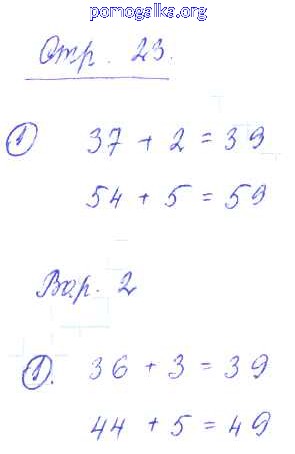 pomogalka.org
Стр. 23.
① 37 + 2 = 39
54 + 5 = 59
Вар. 2
①. 36 + 3 = 39
44 + 5 = 49